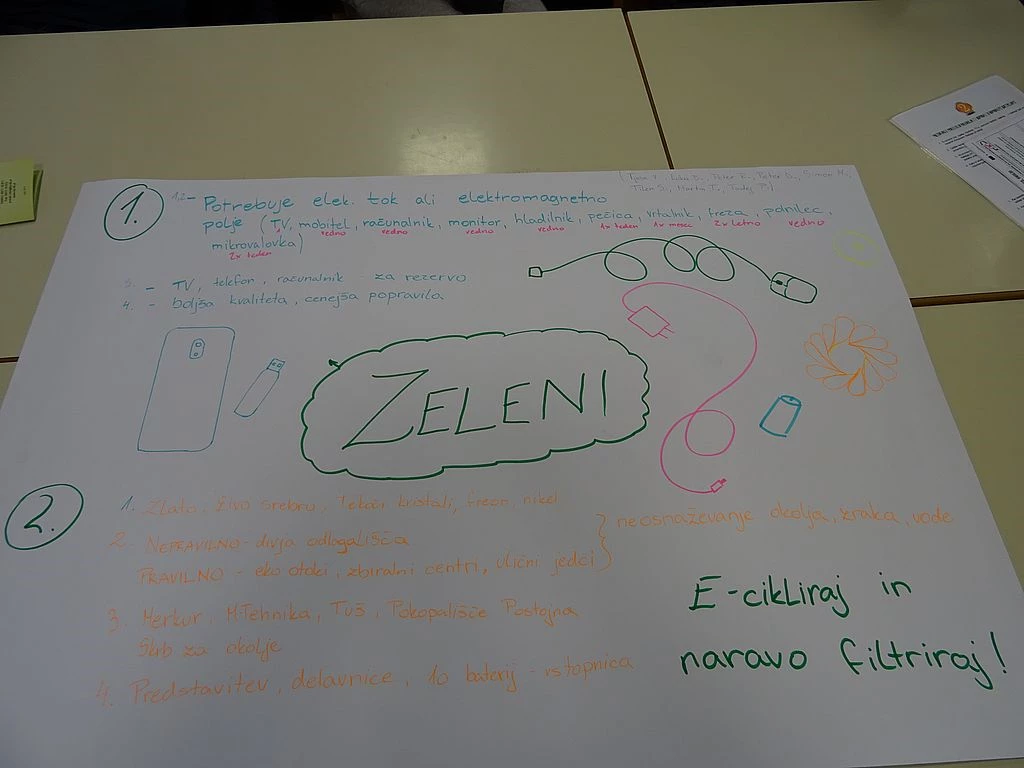 1.
(Tjaša V., Luka D., Peter R., Peter S., Simon M.,
Tilen S., Marta T., Tadej P.)
1,2 - Potrebuje elek. tok ali elektromagnetno
polje (TV, mobitel, računalnik, monitor, hladilnik, pečica, vrtalnik, freza, polnilec,
vedno vedno vedno vedno 1x teden 1x mesec 2x letno vedno
mikrovalovka)
2x teden
3. - TV, telefon, računalnik - za rezervo
4. - boljša kvaliteta, cenejša popravila
ZELENI
2.
1. Zlato, živo srebro, tekoči kristali, freon, nikel
2. NEPRAVILNO - divja odlagališča
PRAVILNO - eko otoki, zbiralni centri, ulični
} neosnaževanje okolja, zraka, vode
3. Merkur, M-Tehnika, Tuš, Pokopališče Postojna
Skrb za okolje
4. Predstavitev, delavnice, 10 baterij - vstopnica
E-cikliraj in
naravo filtriraj!